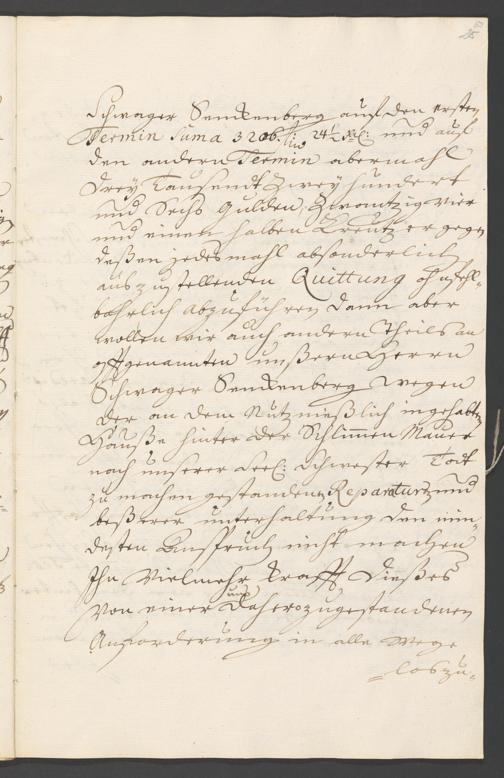 25
Schwager Senckenberg auf den ersten
Termin Suma 3206. fl: 24½ Xr: und auf
den andern Termin abermahl
Drey Tausendt Zwey hundert
und Sechs Gulden, Zwantzig vier
und einen halben Creutzer gegen
deßen jedesmahl absonderlich
auszustellenden Quittung ohnfehl-
bahrlich abzuführen dann aber
wollen wir auch andern Theils an
offtgenannten unßern Herrn
Schwager Senckenberg wegen
der an dem Nutznießlich ingehabten
Hauße hinter der Schlimmen Mauer
nach unserer Seel: Schwester Todt
zu machen gestandenen Reparatur, und
beßerer unterhaltung den min-
desten Anspruch nicht machen
Ihn Vielmehr krafft Dießes
von einer uns dahero zugestandenen
Anforderung in alle Wege
loszu-